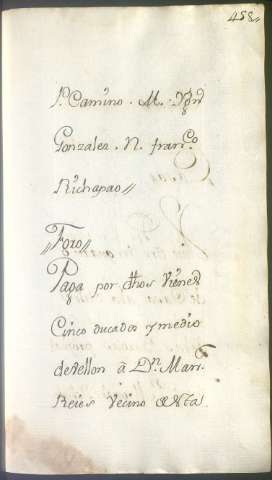 458
P. Camino. M. Ygn
Gonzales. N. franco
Nichapao //
// Foro //
Paga por dhos Vienes
Cinco ducados y medio
de vellon â Dn. Man.
Reies Vecino de Sta